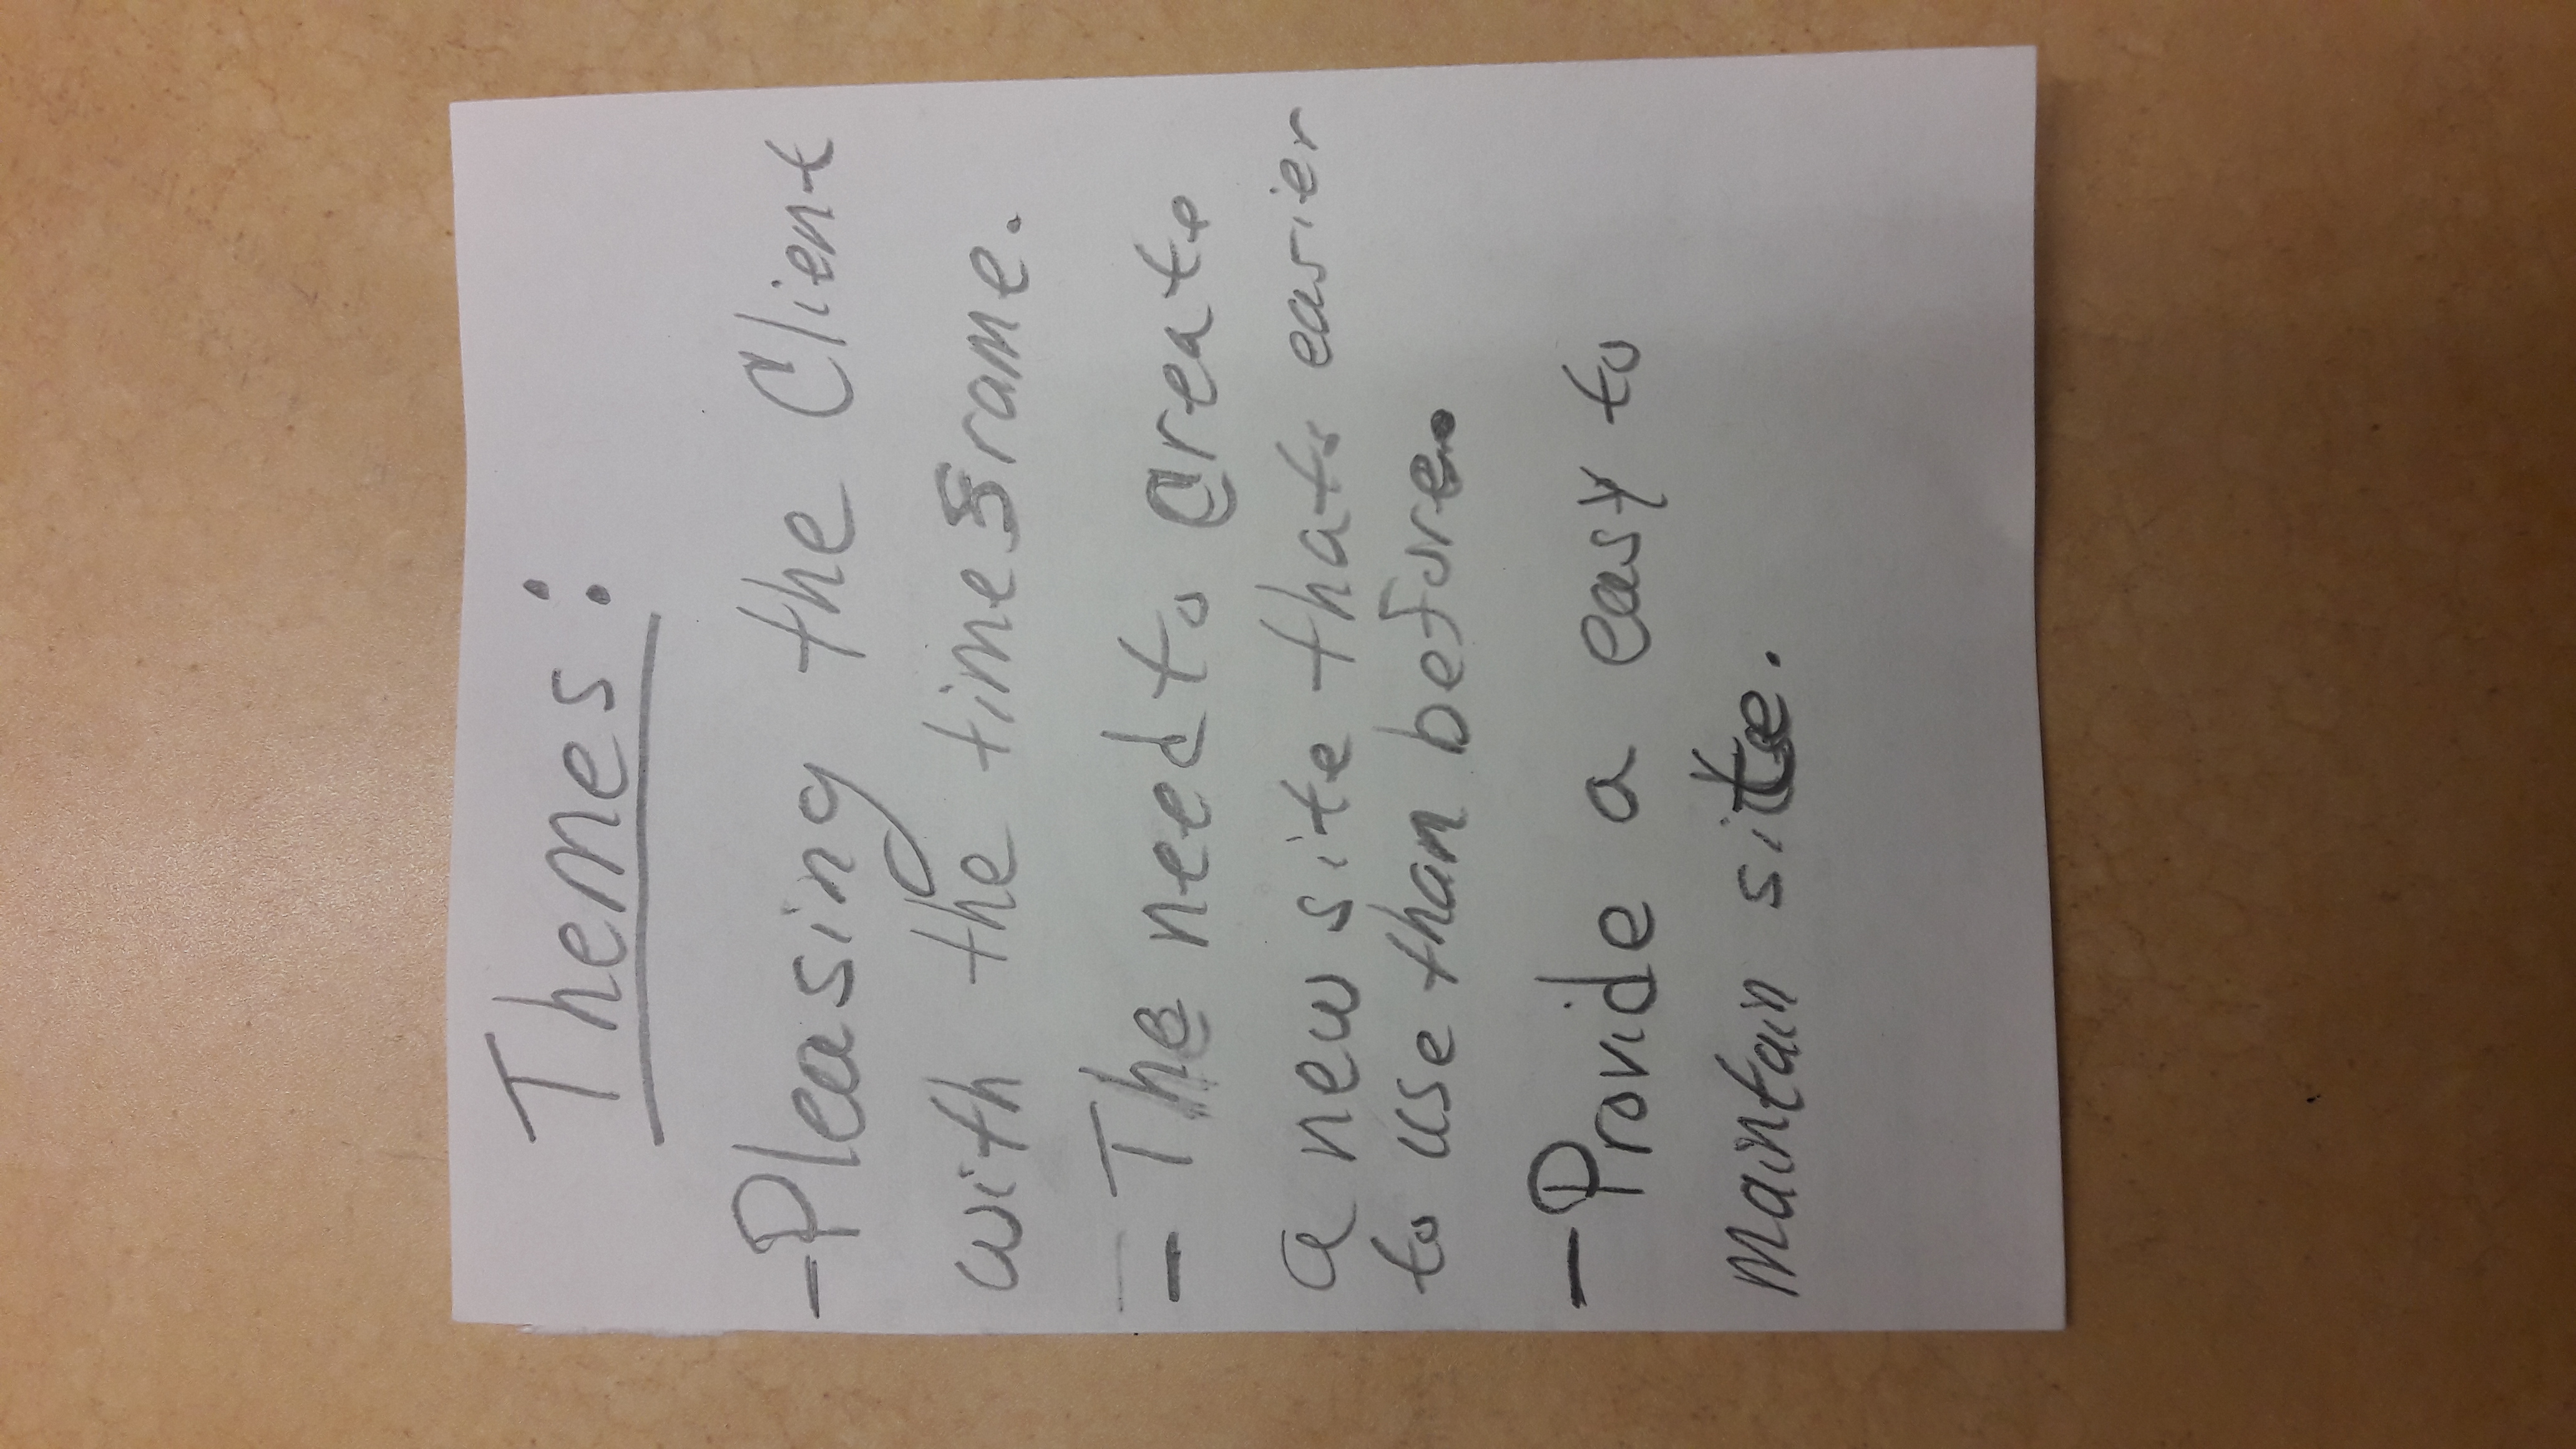 Themes:
-Pleasing the Client
with the timeframe.
- The need to create
a new site thats easier
to use than before.
-Provide a easy to
maintain site.